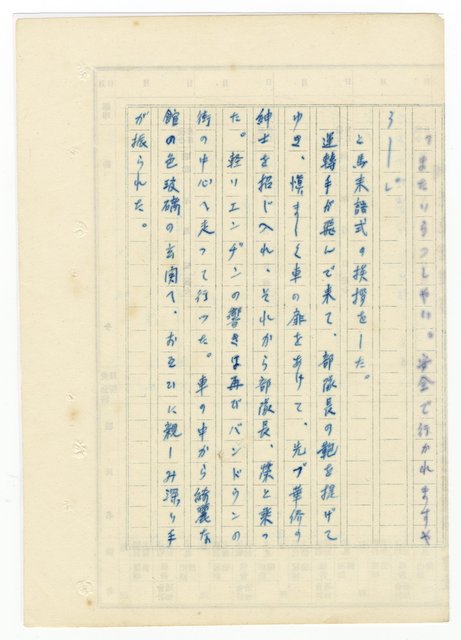 「またいらつしやい。安全で行かれますや
うーし」
と馬来語式の挨拶をした。
運轉手が飛んで来て、部隊長の鞄を提げて
ゆき、慎ましく車の扉をあけて、先づ華僑の
紳士を招じ入れ、それから部隊長、榮と乗つ
た。軽いエンヂンの響きは再びバンドウンの
街の中心へ走つて行つた。車の中から綺麗な
館の色玻璃の玄関へ、お互ひに親しみ深い手
が振られた。